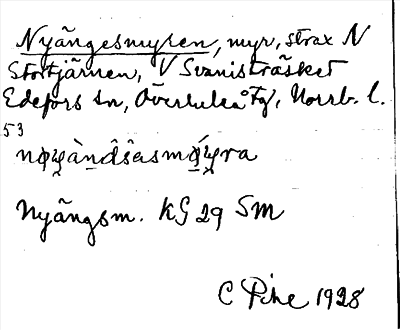 Nyängesmyren, myr, strax N
Stortjärnen, V Svanisträsket
Edefors sn, Överluleå tg, Norrb. l.
53
Nyängsm. KG 29 SM
C Pihl 1928